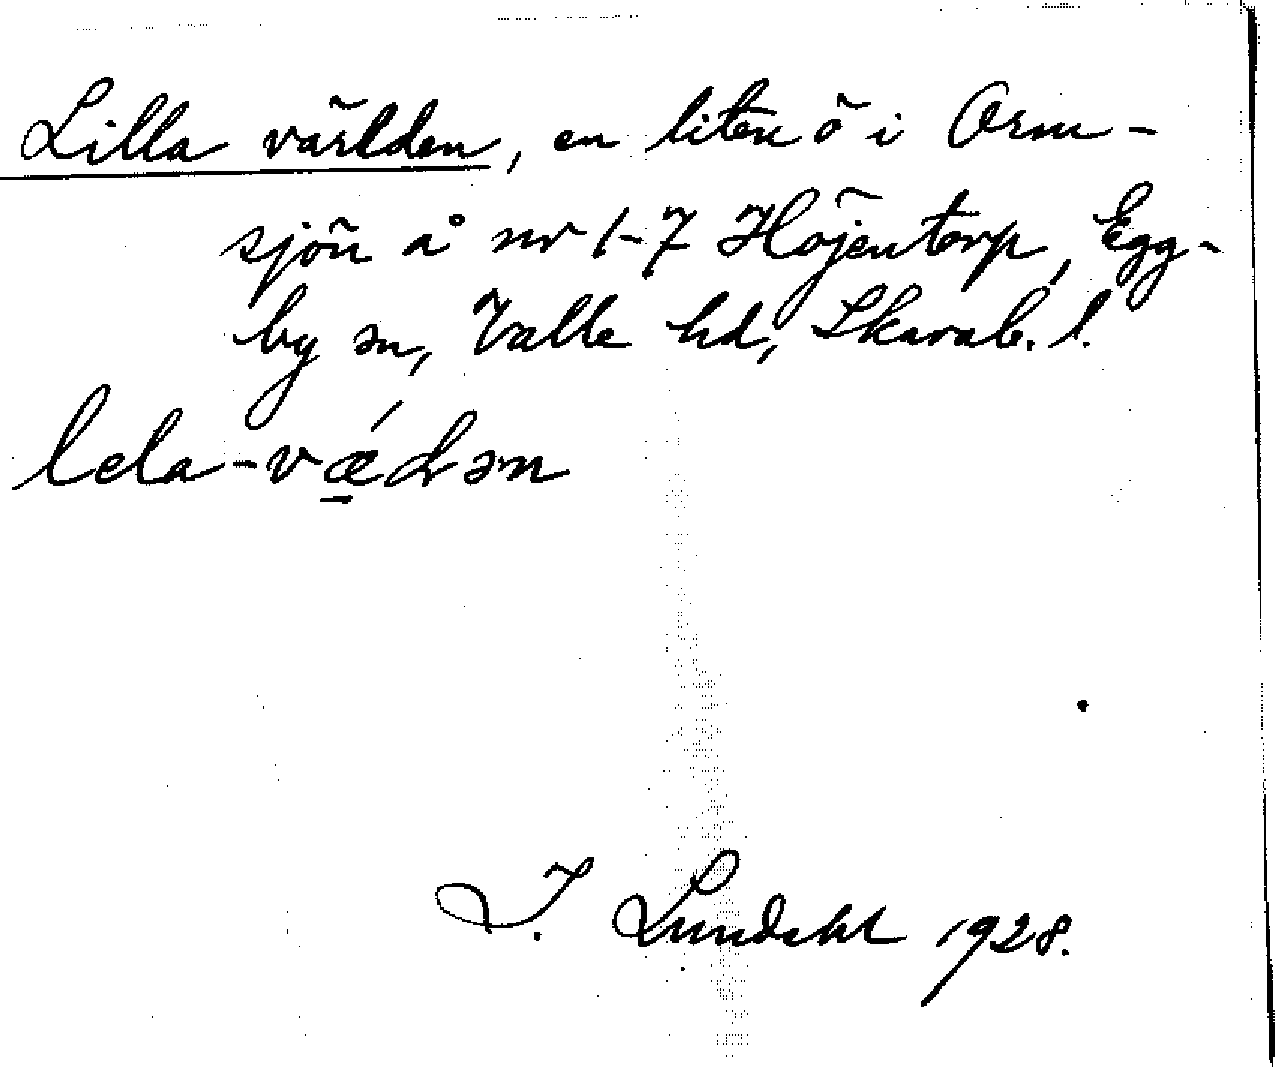 Lilla världen, en liten ö i Orm-
sjön å nr 1-7 Höjentorp, Egg-
by sn, Valle hd, Skarab. l.
lela-vǽdən
I. Lundahl 1928.